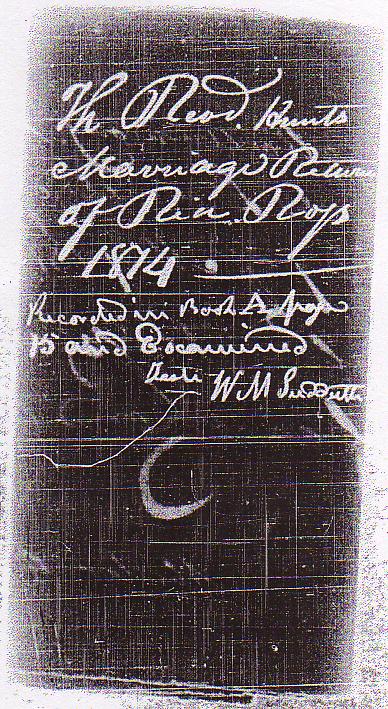 Th Read. Hunts
Marriage Return
of Rev. Ross
1874
Recorded in Book A page
15 and Examined
Teste W M Sudduth